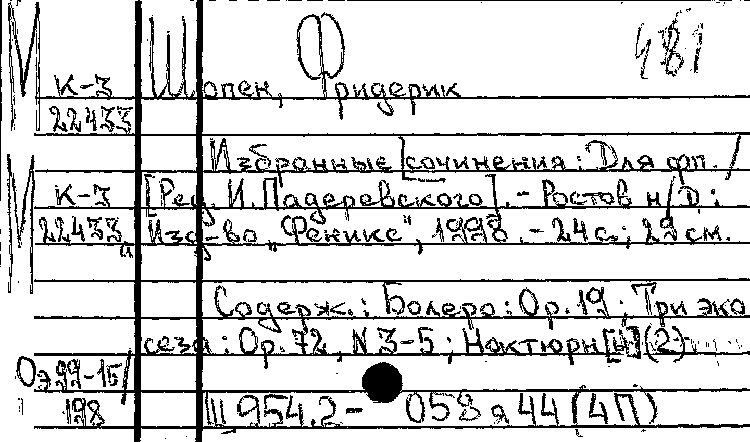 М К-3 Шопен, Фридерик 481
22433
Избранные [сочинения: Для фп. /
М К-3 [Ред. И. Падеревского]. - Ростов н/Д:
22433 Изд-во „Феникс“, 1998. - 24 с.; 29 см.
Содерж.: Болеро: Op. 19; Три эко
сеза: Op. 72, N 3-5; Ноктюрн (2)
Оэ99-15/
198 Ш 954.2- 058 я 44 (4П)